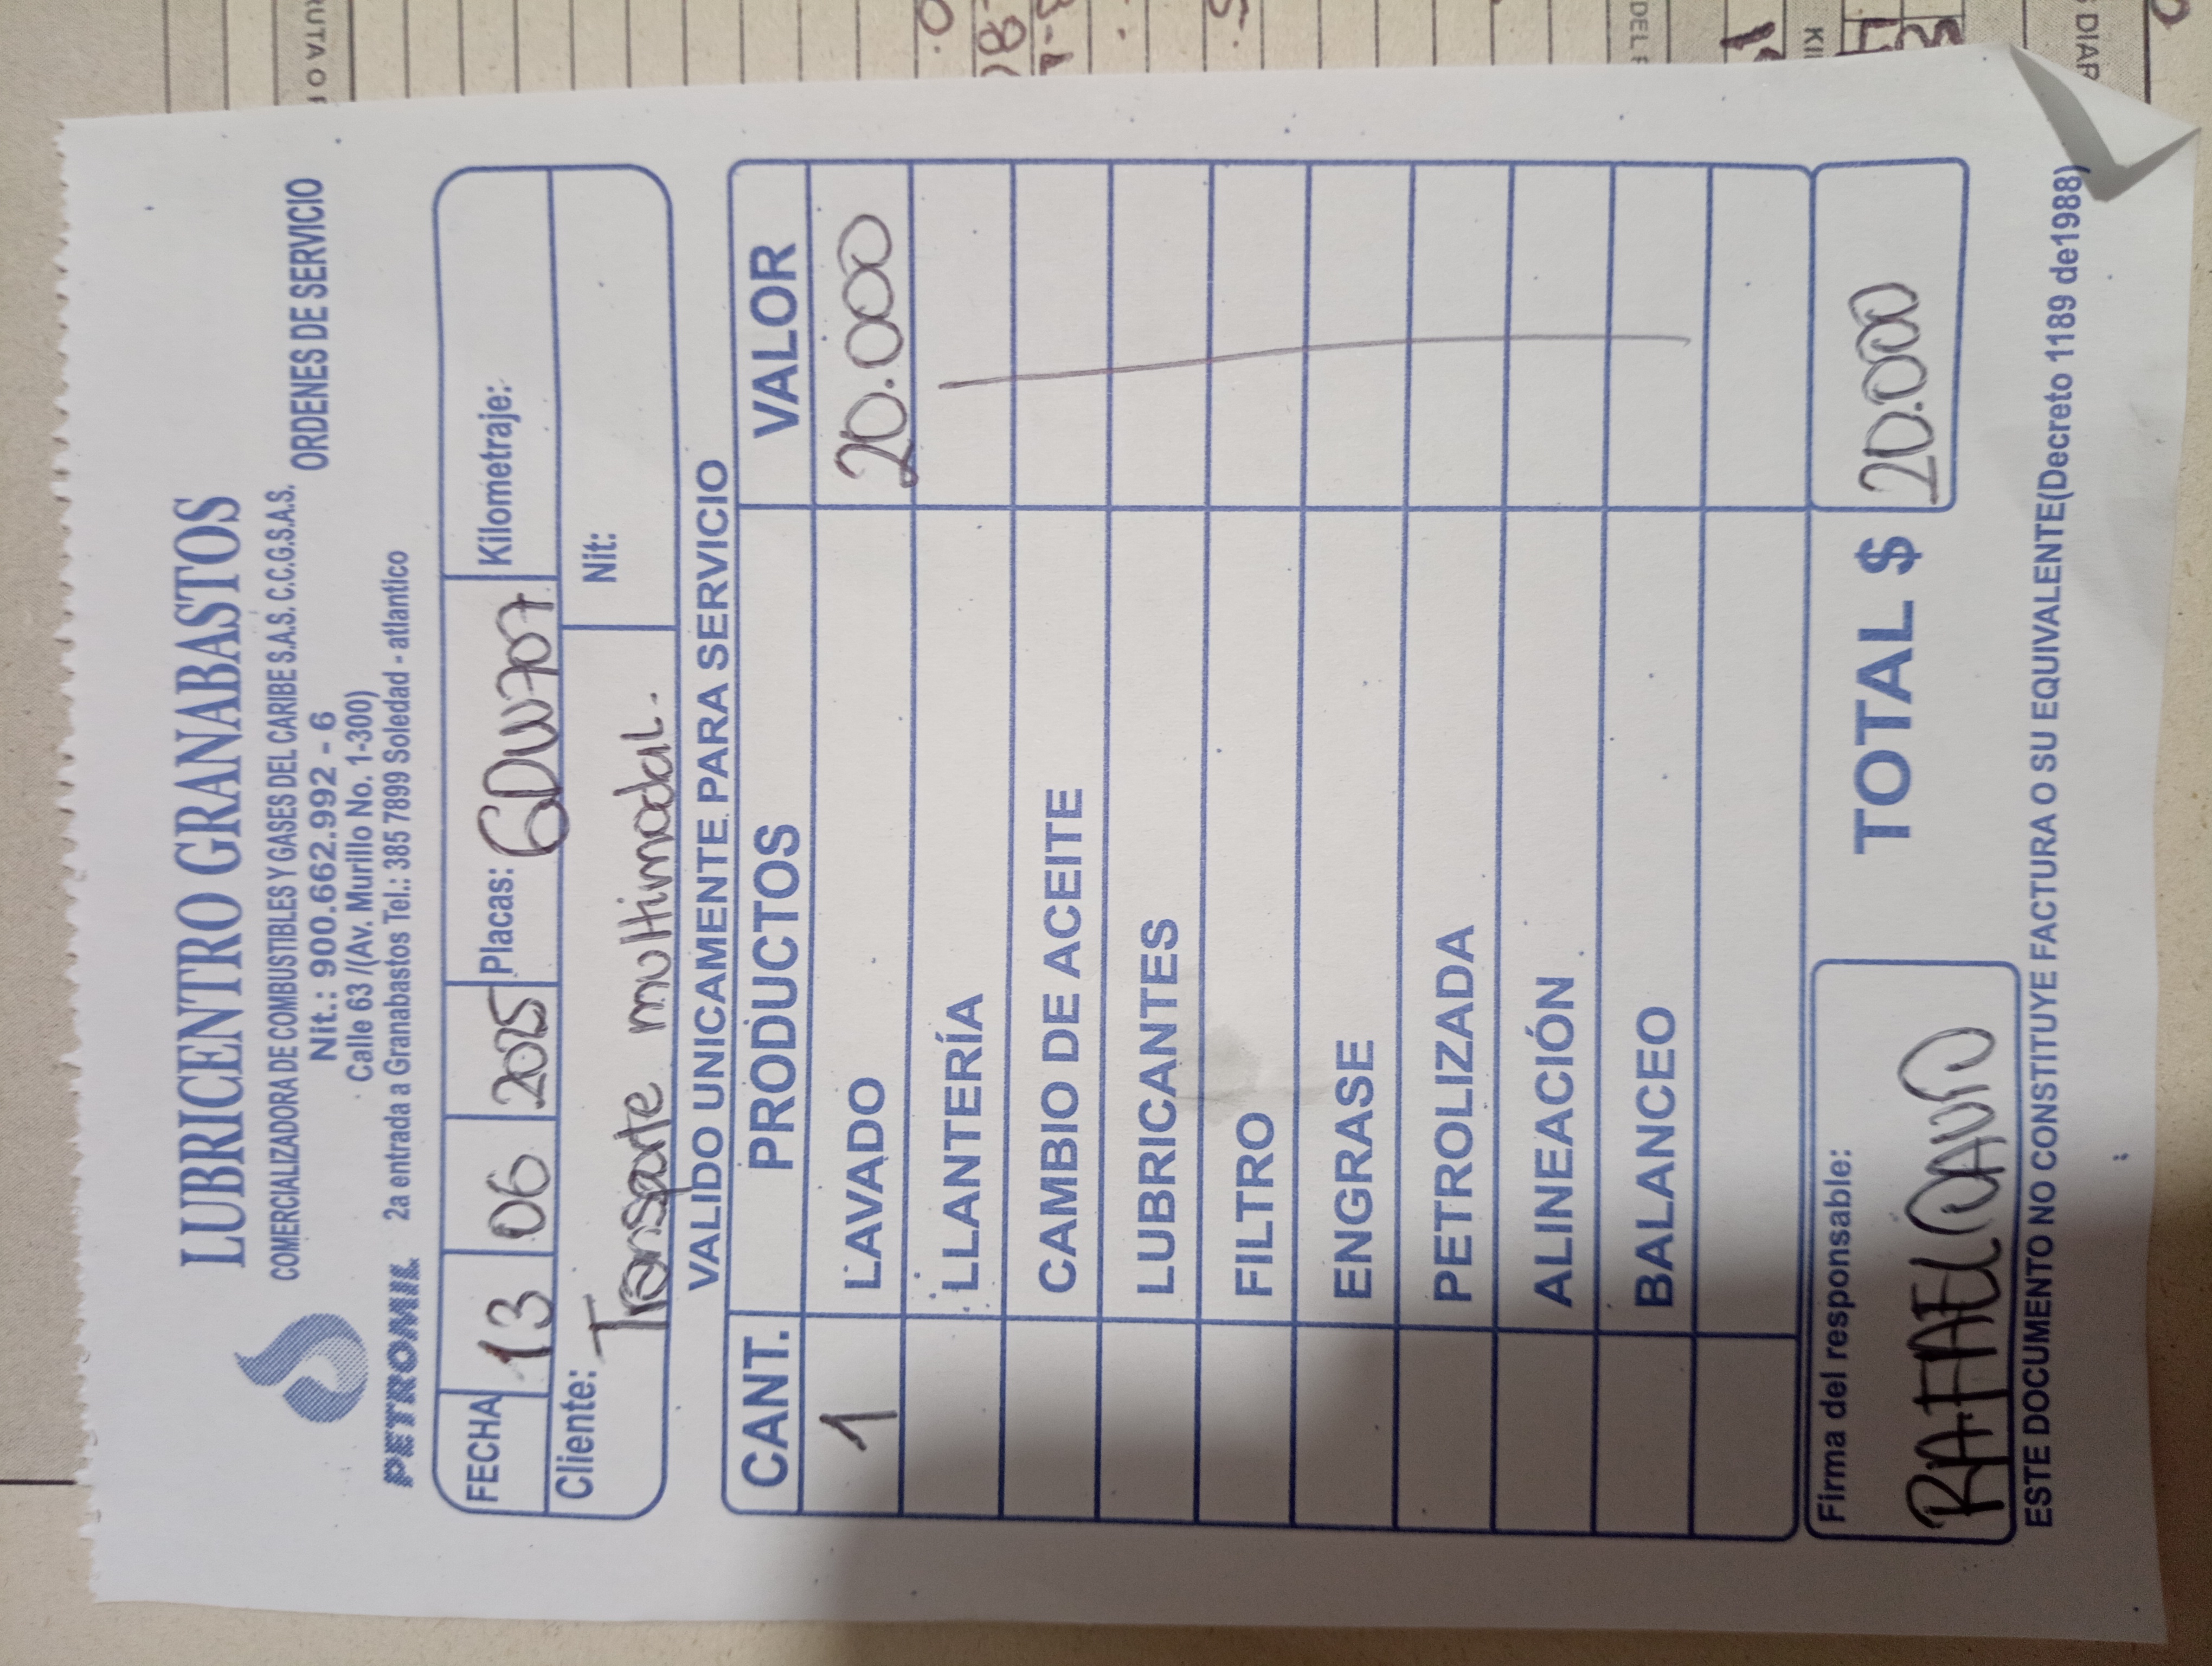 LUBRICENTRO GRANABASTOS
COMERCIALIZADORA DE COMBUSTIBLES Y GASES DEL CARIBE S.A.S. C.C.G.S.A.S.
Nit.: 900.662.992 - 6
ORDENES DE SERVICIO
Calle 63 /(Av. Murillo No. 1-300)
PETROMIL 2a entrada a Granabastos Tel.: 385 7899 Soledad - atlantico
FECHA 13 06 2025 Placas: GDW707 Kilometraje:
Cliente: Transporte multimodal. Nit:
VALIDO UNICAMENTE PARA SERVICIO
CANT. PRODUCTOS VALOR
1 LAVADO 20.000
LLANTERÍA
CAMBIO DE ACEITE
LUBRICANTES
FILTRO
ENGRASE
PETROLIZADA
ALINEACIÓN
BALANCEO
Firma del responsable: TOTAL $ 20.000
RAFAEL
ESTE DOCUMENTO NO CONSTITUYE FACTURA O SU EQUIVALENTE(Decreto 1189 de1988)